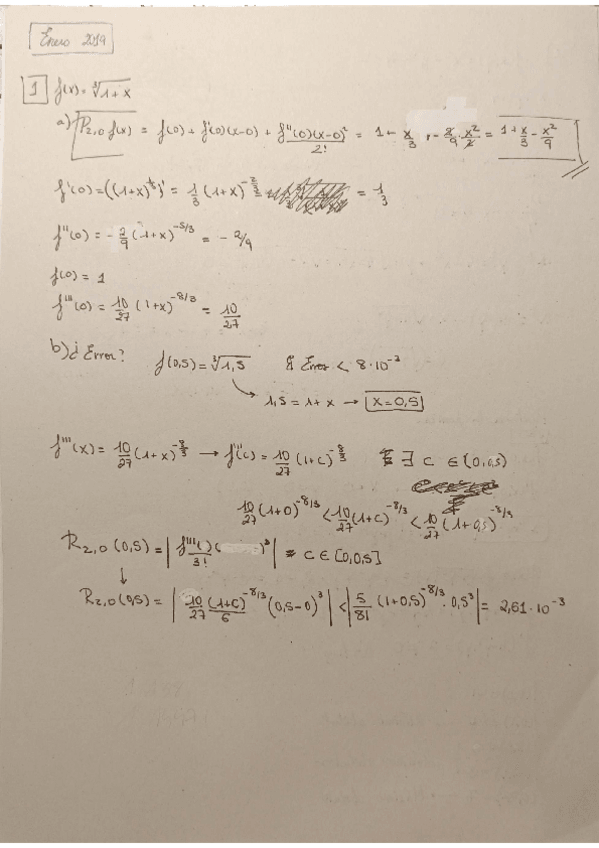 Enero 2019
1 f(x) = ∛1+x
a) P₂,₀ f(x) = f(0) + f'(0)(x-0) + f''(0)(x-0)²/2! = 1 + x/3 - 2/9 · x²/2 = 1 + x/3 - x²/9
f'(0) = ((1+x)^⅓)' = 1/3 (1+x)^-2/3 = 1/3
f''(0) = -2/9 (1+x)^-5/3 = -2/9
f(0) = 1
f'''(0) = 10/27 (1+x)^-8/3 = 10/27
b) ¿ Error? f(0,5) = ∛1,5 Error < 8·10⁻³
1,5 = 1+x → x = 0,5
f'''(x) = 10/27 (1+x)^-8/3 → f'''(c) = 10/27 (1+c)^-8/3 ∃ c ∈ [0,0,5)
10/27 (1+0)^-8/3 < 10/27 (1+c)^-8/3 < 10/27 (1+0,5)^-8/3
R₂,₀ (0,5) = | f'''( ) ( )³/3! | c ∈ [0,0,5]
↓
R₂,₀ (0,5) = | 10/27 (1+c)^-8/3/6 (0,5-0)³ | < | 5/81 (1+0,5)^-8/3 · 0,5³ | = 2,61·10⁻³